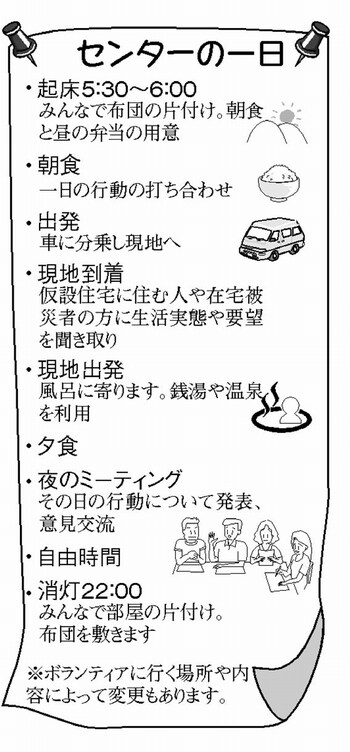 センターの一日
・起床5:30～6:00
みんなで布団の片付け。朝食
と昼の弁当の用意
・朝食
一日の行動の打ち合わせ
・出発
車に分乗し現地へ
・現地到着
仮設住宅に住む人や在宅被
災者の方に生活実態や要望
を聞き取り
・現地出発
風呂に寄ります。銭湯や温泉
を利用
・夕食
・夜のミーティング
その日の行動について発表、
意見交流
・自由時間
・消灯22:00
みんなで部屋の片付け。
布団を敷きます
※ボランティアに行く場所や内
容によって変更もあります。